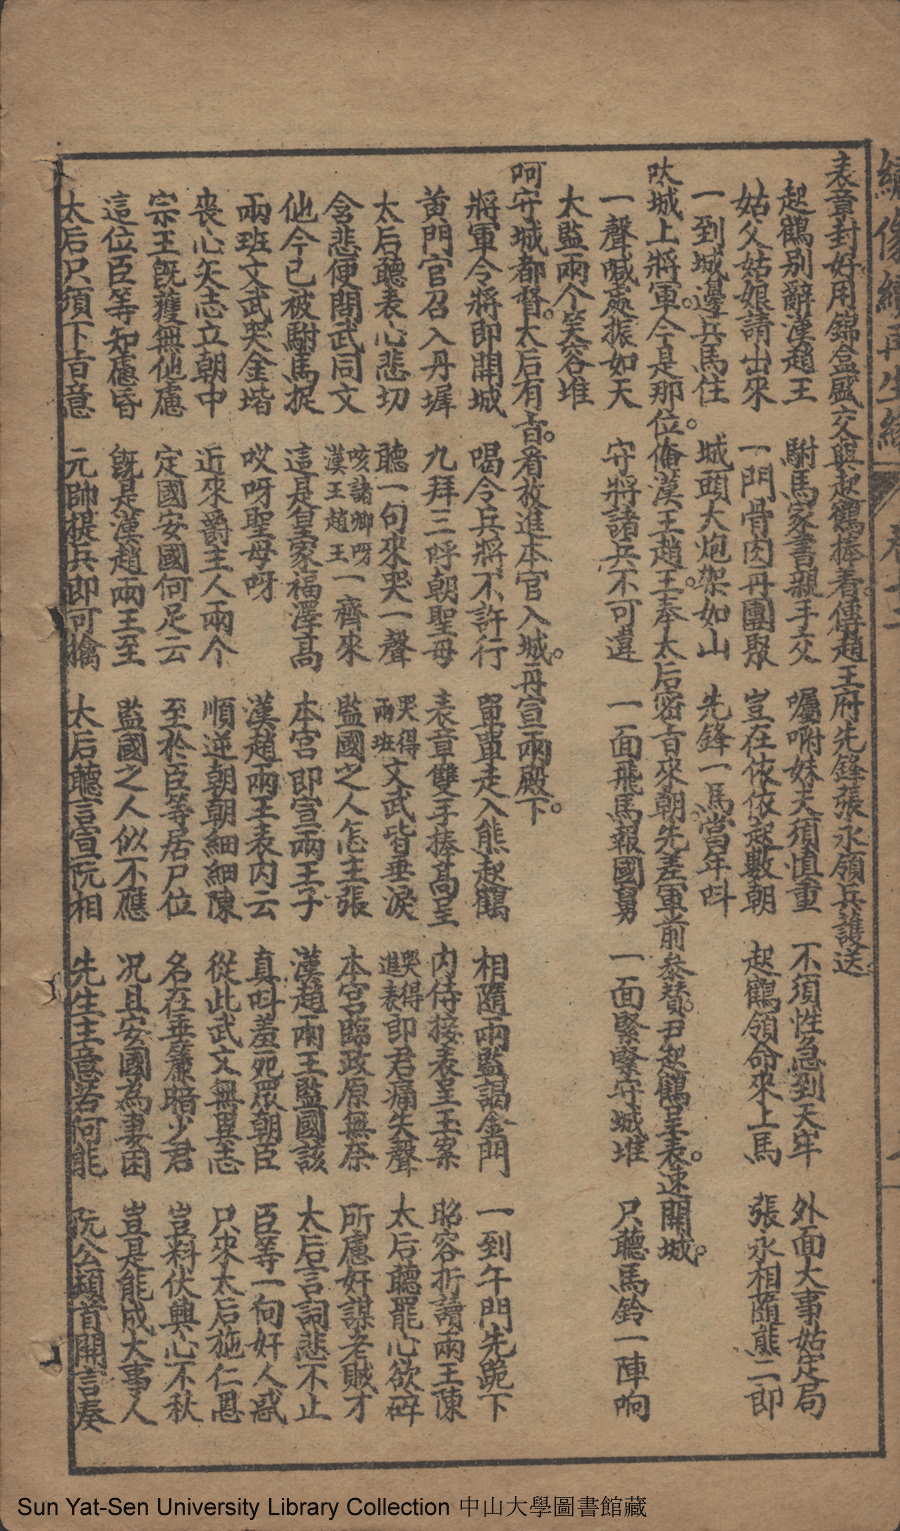 繡像繪再生緣
卷十二
表章封好用錦盒盛交與起鶴捧着傳趙王府先鋒張永領兵護送。
起鶴別辭漢趙王 駙馬家書親手交 囑咐妹夫須慎重 不須性急到天牢 外面大事姑定局
姑父姑娘請出來 一門骨肉再團聚 豈在依依起數朝 起鶴領命來上馬 張永相隨熊二郎
一到城邊兵馬住 城頭大炮架如山 先鋒一馬當年呌
呔城上將軍。今是那位。俺漢王趙王。奉太后密旨來朝。先差軍前參贊。尹起鶴呈表。速開城。
一聲喊處振如天 守將諸兵不可違 一面飛馬報國舅 一面緊緊守城堆 只聽馬鈴一陣响
太監兩个笑容堆
呵守城都督。太后有旨。着放進本官入城。再宣兩殿下。
將軍令將即開城 喝令兵將不許行 單單走入熊起鶴 相隨兩監謁金門 一到午門先跪下
黃門官召入丹墀 九拜三呼朝聖母 表章雙手捧高呈 內侍接表呈玉案 昭容折讀兩王陳
太后聽表心悲切 聽一句來哭一聲 哭得兩班文武皆垂淚 哭得進表即君痛失聲 太后聽罷心欲碎
含悲便問武同文 咳諸卿呀漢王趙王一齊來 監國之人怎主張 本宮臨政原無奈 所慮奸謀老賊才
他今已被駙馬捉 這是皇家福澤高 本宮即宣兩王子 漢趙兩王監國該 太后言詞悲不止
兩班文武哭金堦 哎呀聖母呀 漢趙兩王表內云 真呌羞死眾朝臣 臣等一向奸人惑
喪心矢志立朝中 近來爵主人兩个 順逆朝朝細細陳 從此武文無異志 只來太后施仁恩
宗王旣獲無他慮 定國安國何足云 至於臣等居尸位 名在垂簾暗少君 豈料伏輿心不秋
這位臣等知慮昏 旣是漢趙兩王至 監國之人似不應 况且安國為妻困 豈是能成大事人
太后只須下旨意 元帥提兵即可擒 太后聽言宣阮相 先生主意若何能 阮公頓首開言奏
Sun Yat-Sen University Library Collection 中山大學圖書館藏